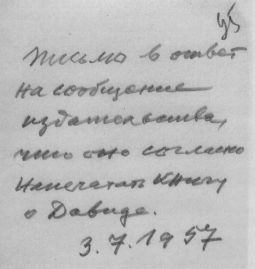 95
Письмо в ответ
на сообщение
издательства,
что оно согласно
напечатать книгу
о Давиде.
3.7.1957